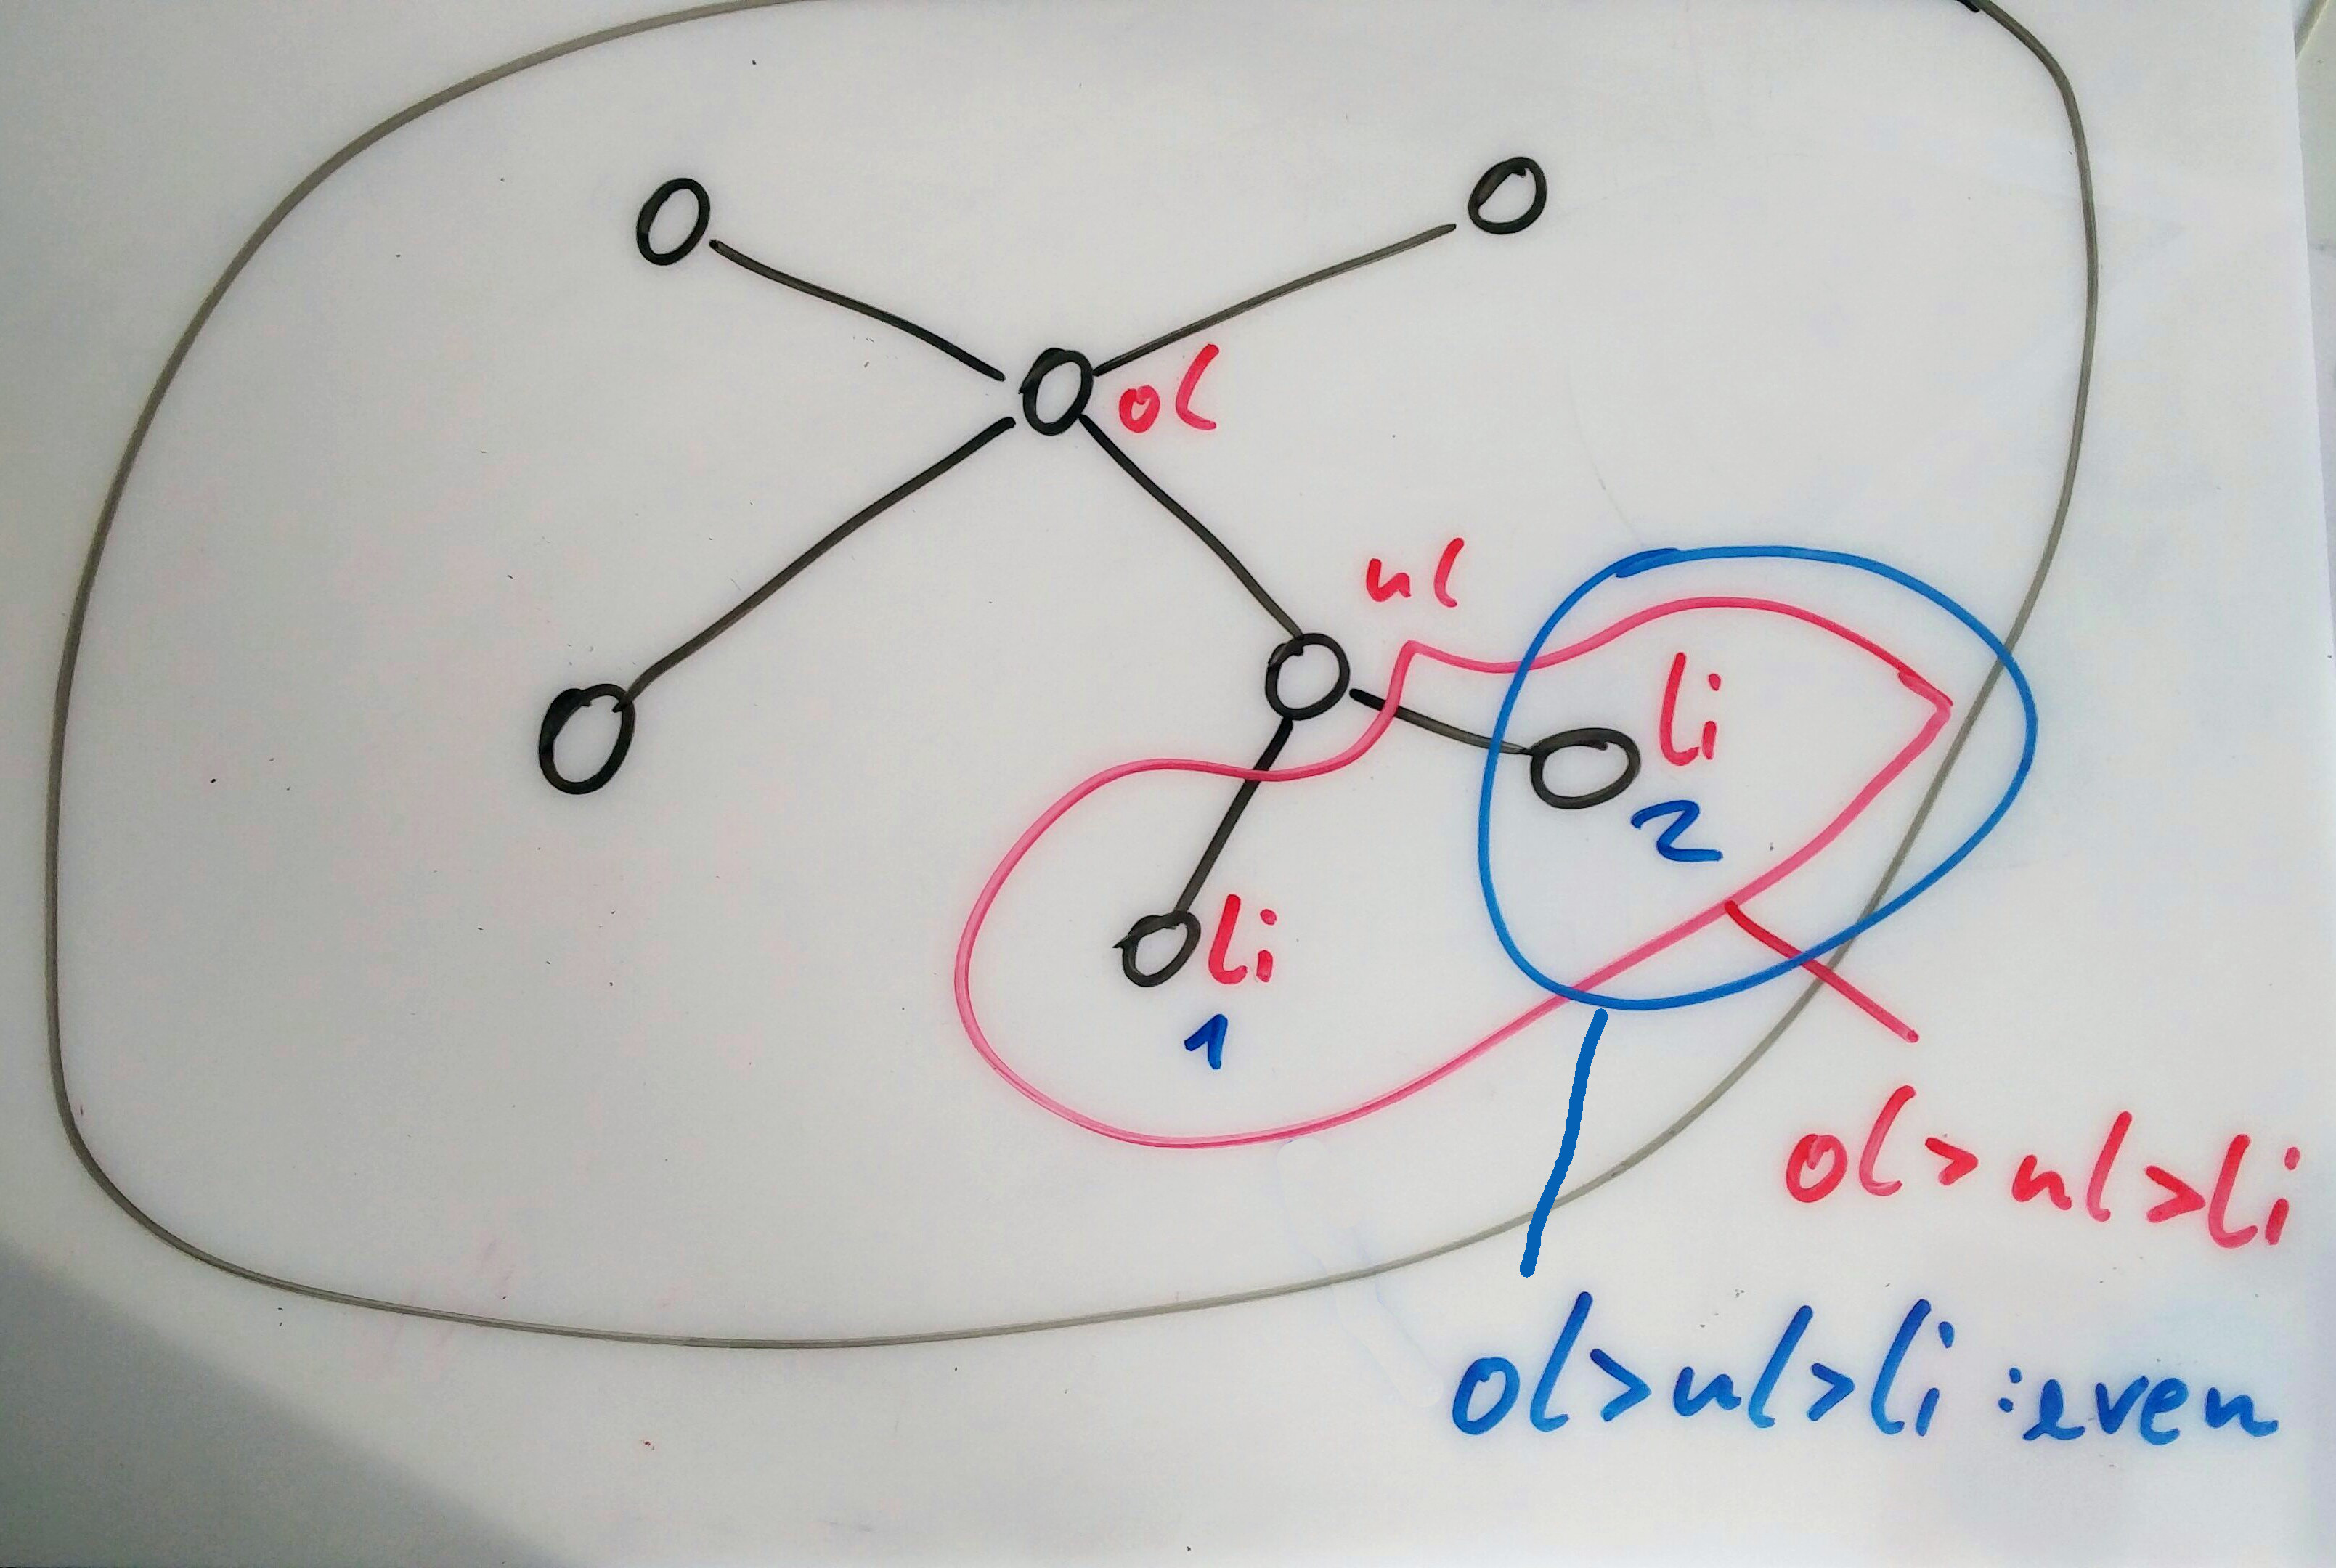 ol
ul
li
2
li
1
ol>ul>li
ol>ul>li :even